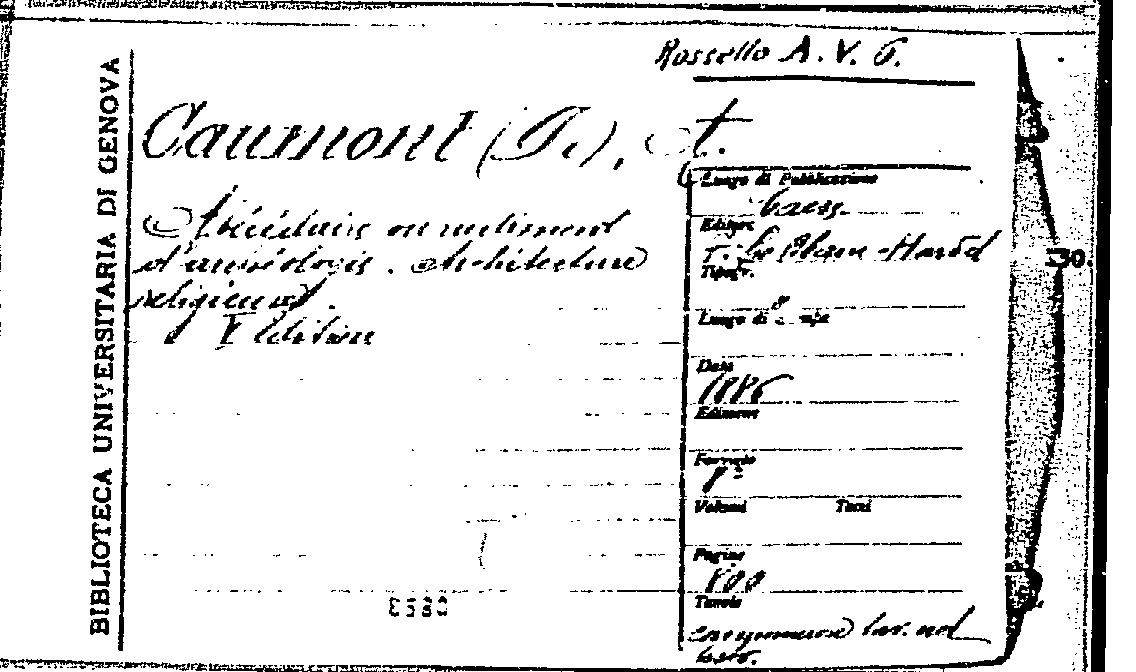 BIBLIOTECA UNIVERSITARIA DI GENOVA
Rossello A. V. 6.
Caumont (A.), A.
Abécédaire ou rudiment
d'archéologie. Architecture
religieuse.
V Edition
Luogo di Pubblicazione
Caen
Editore
F. Le Blanc-Hardel
Tipogr.
Luogo di
Data
1886
Edizione
Formato
8°
Volumi Tomi
Pagine
800
Tavole
tav. nel
testo.
30.